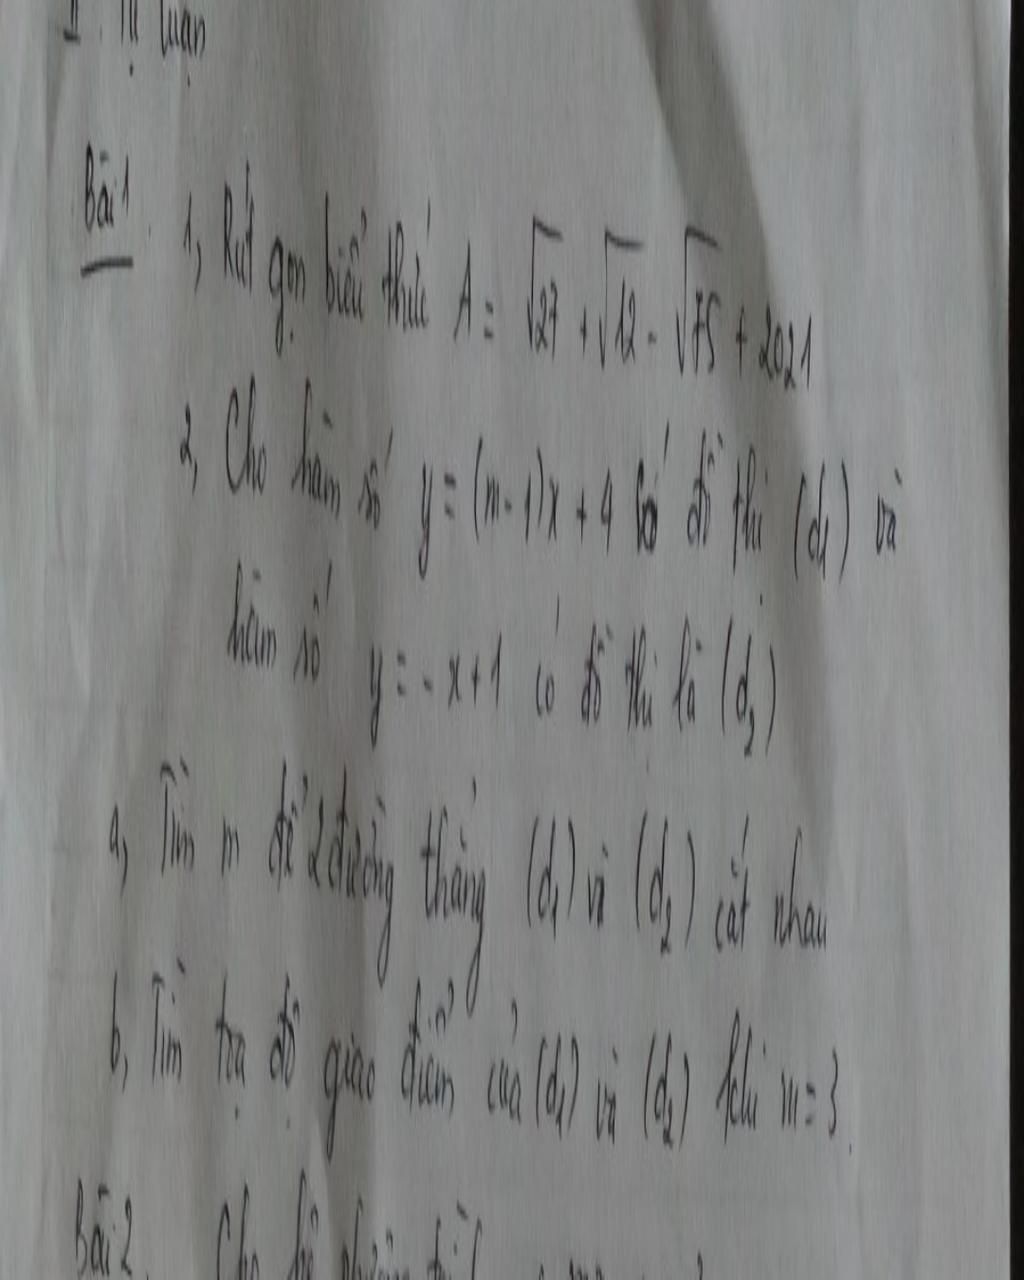 II. Tự luận
Bài 1. 1, Rút gọn biểu thức A = √27 + √12 - √75 + 2021
2, Cho hàm số y = (m-1)x + 4 có đồ thị (d₁) và
hàm số y = -x+1 có đồ thị là (d₂)
a, Tìm m để 2 đường thẳng (d₁) và (d₂) cắt nhau
b, Tìm tọa độ giao điểm của (d₁) và (d₂) khi m=3.
Bài 2. Cho hệ phương